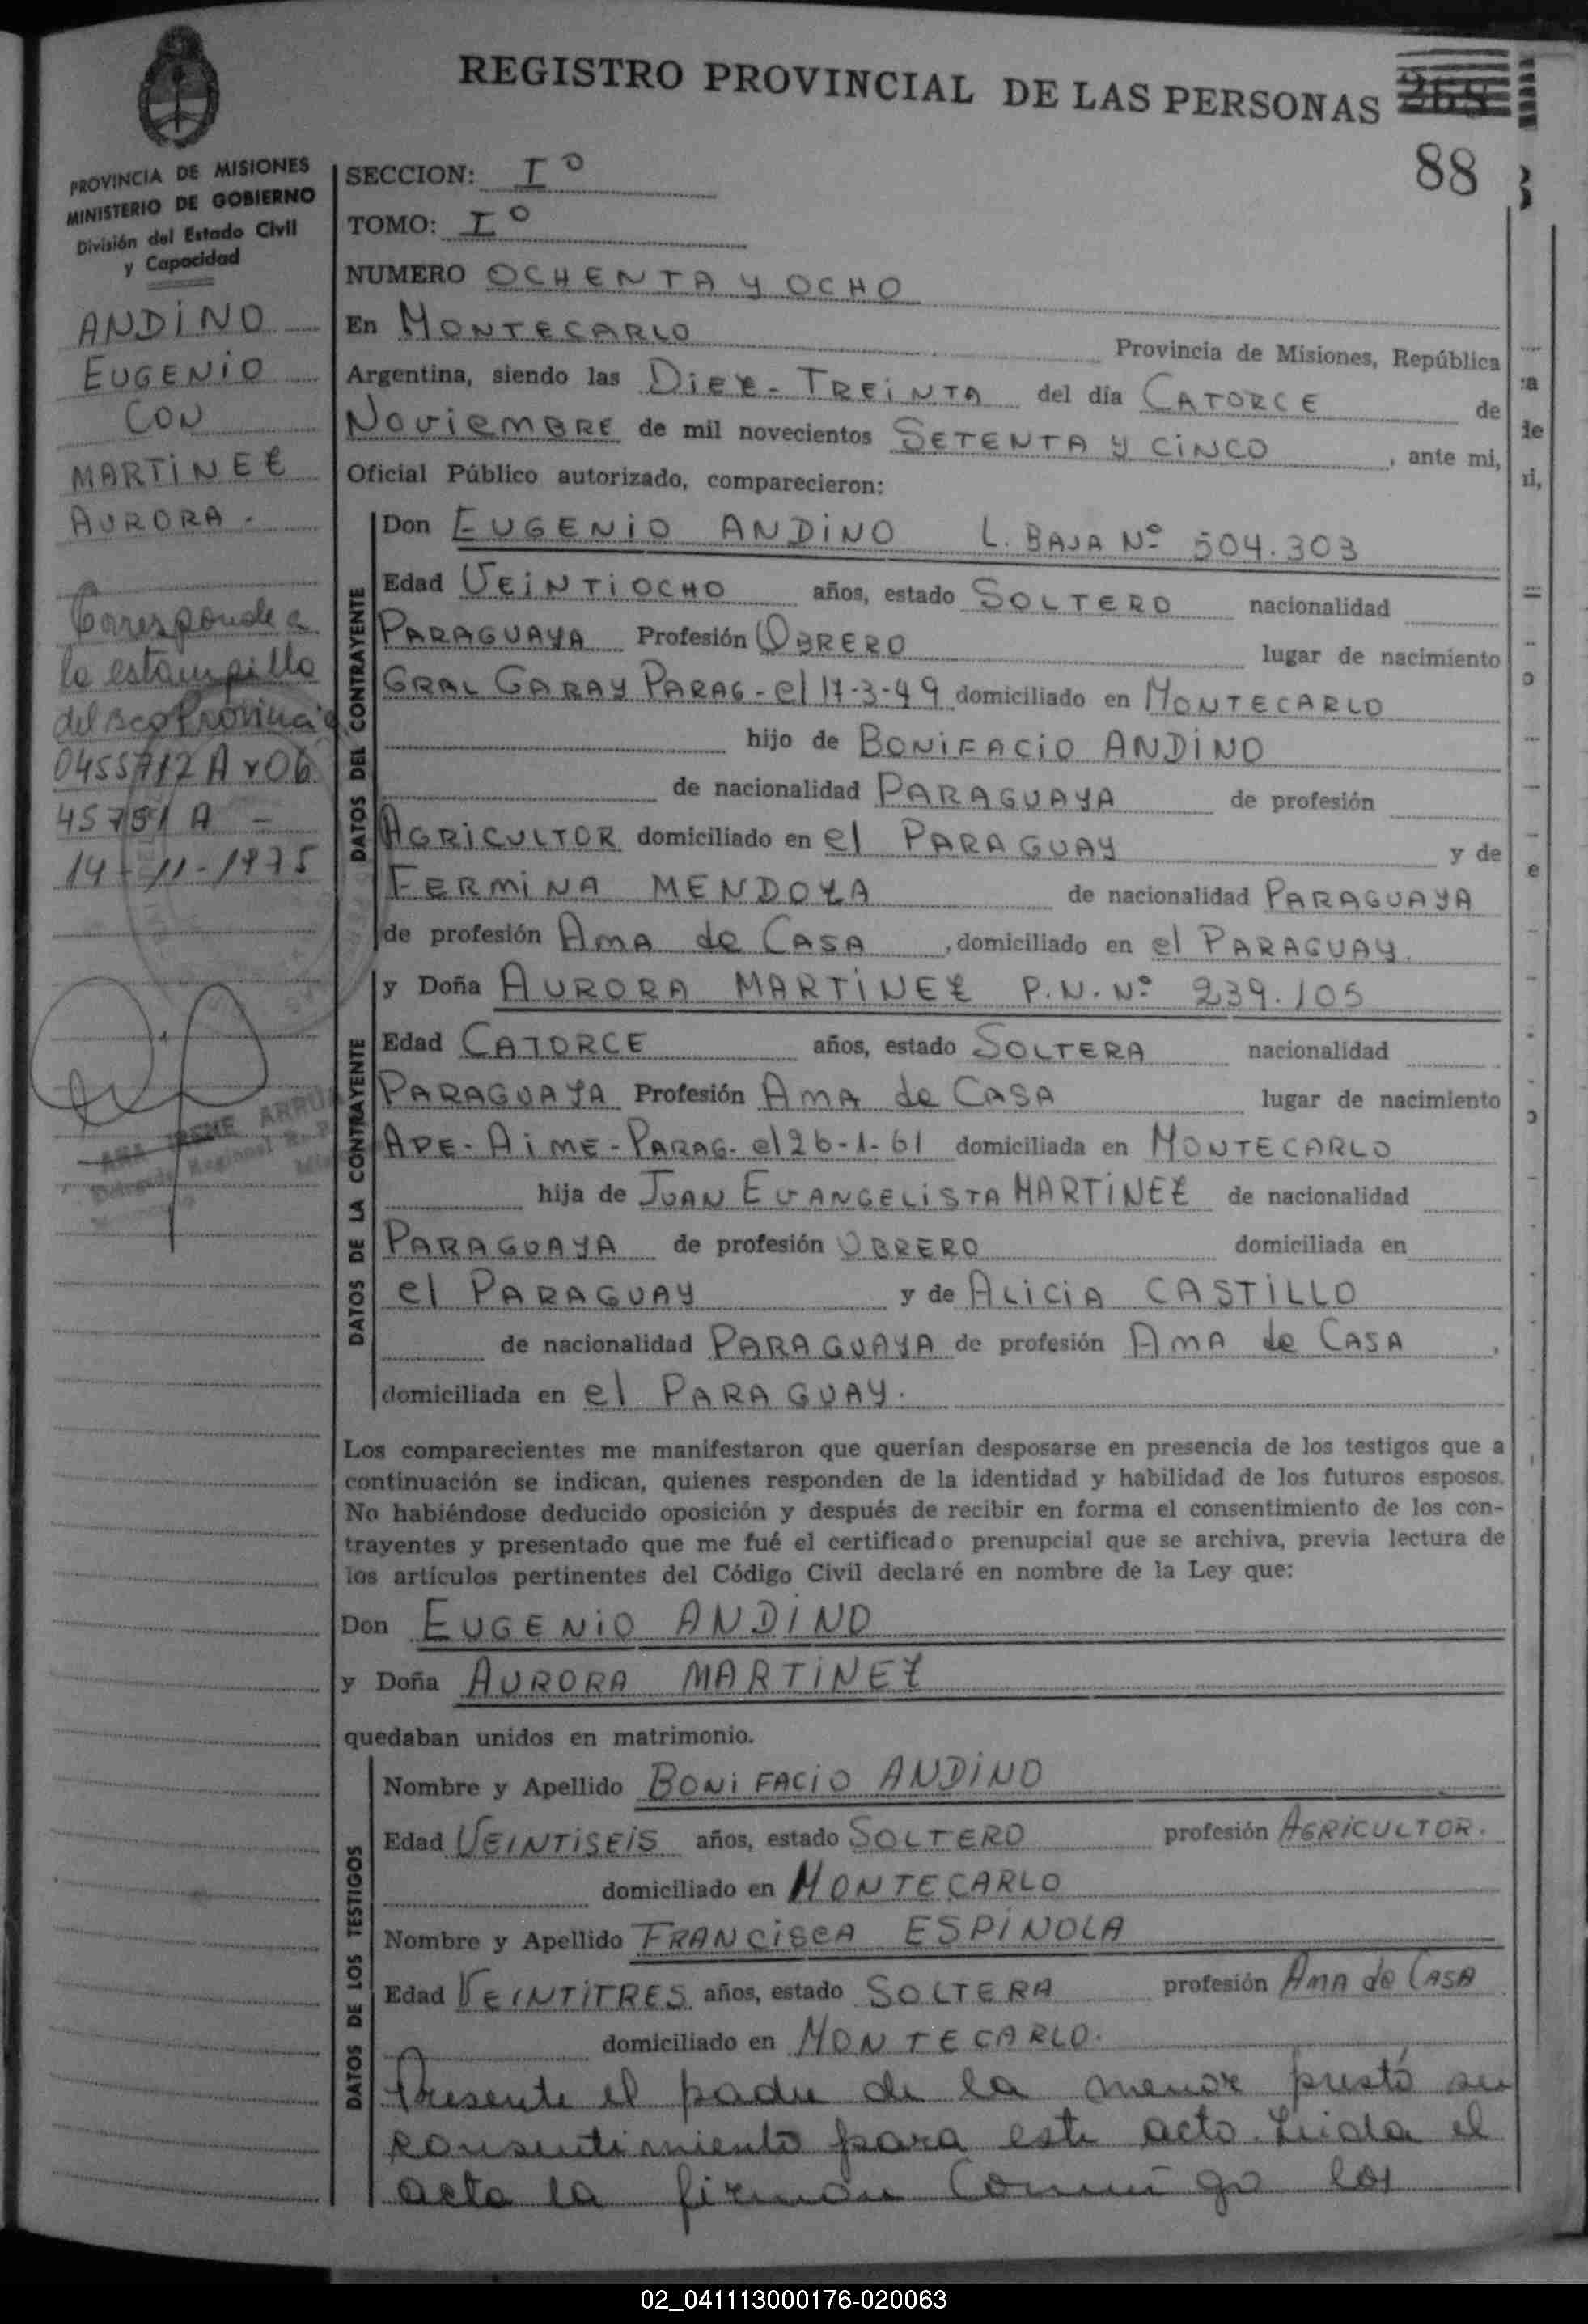 REGISTRO PROVINCIAL DE LAS PERSONAS 268
88
PROVINCIA DE MISIONES
MINISTERIO DE GOBIERNO
División del Estado Civil
y Capacidad
ANDINO
EUGENIO
CON
MARTINEZ
AURORA.
Corresponde a
la estampilla
del Bco Provincia
0455712 A y 06
45751 A -
14-11-1975
SECCION: I°
TOMO: I°
NUMERO OCHENTA Y OCHO
En MONTECARLO Provincia de Misiones, República
Argentina, siendo las DIEZ-TREINTA del día CATORCE de
NOVIEMBRE de mil novecientos SETENTA Y CINCO, ante mi,
Oficial Público autorizado, comparecieron:
DATOS DEL CONTRAYENTE
Don EUGENIO ANDINO L. BAJA Nº 504.303
Edad VEINTIOCHO años, estado SOLTERO nacionalidad
PARAGUAYA Profesión OBRERO lugar de nacimiento
GRAL GARAY PARAG- el 17-3-49 domiciliado en MONTECARLO
hijo de BONIFACIO ANDINO
de nacionalidad PARAGUAYA de profesión
AGRICULTOR domiciliado en el PARAGUAY y de
FERMINA MENDOZA de nacionalidad PARAGUAYA
de profesión AMA de CASA, domiciliado en el PARAGUAY.
DATOS DE LA CONTRAYENTE
y Doña AURORA MARTINEZ P.N.Nº 239.105
Edad CATORCE años, estado SOLTERA nacionalidad
PARAGUAYA Profesión AMA de CASA lugar de nacimiento
APE-AIME-PARAG- el 26-1-61 domiciliada en MONTECARLO
hija de JUAN EVANGELISTA MARTINEZ de nacionalidad
PARAGUAYA de profesión OBRERO domiciliada en
el PARAGUAY y de ALICIA CASTILLO
de nacionalidad PARAGUAYA de profesión AMA de CASA,
domiciliada en el PARAGUAY.
Los comparecientes me manifestaron que querían desposarse en presencia de los testigos que a
continuación se indican, quienes responden de la identidad y habilidad de los futuros esposos.
No habiéndose deducido oposición y después de recibir en forma el consentimiento de los con-
trayentes y presentado que me fué el certificado prenupcial que se archiva, previa lectura de
los artículos pertinentes del Código Civil declaré en nombre de la Ley que:
Don EUGENIO ANDINO
y Doña AURORA MARTINEZ
quedaban unidos en matrimonio.
DATOS DE LOS TESTIGOS
Nombre y Apellido BONIFACIO ANDINO
Edad VEINTISEIS años, estado SOLTERO profesión AGRICULTOR.
domiciliado en MONTECARLO
Nombre y Apellido FRANCISCA ESPINOLA
Edad VEINTITRES años, estado SOLTERA profesión AMA de CASA
domiciliado en MONTECARLO.
Presente el padre de la menor prestó su
consentimiento para este acto. Leida el
acta la firman conmigo los
02_041113000176-020063